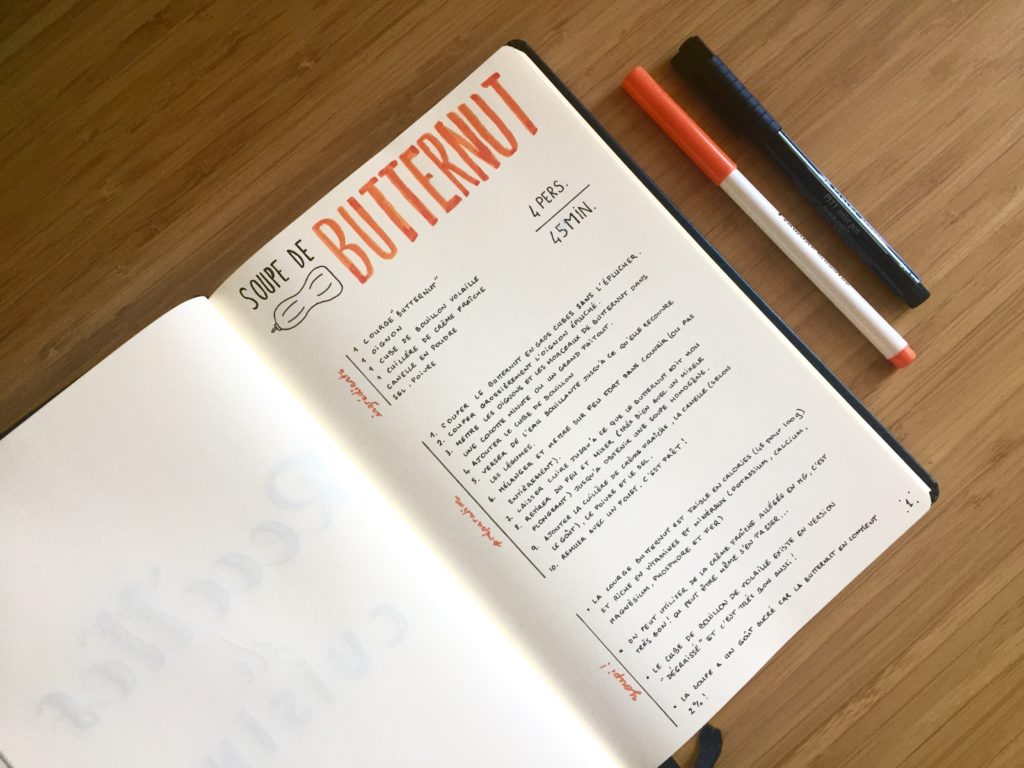 SOUPE DE BUTTERNUT
4 PERS.
45 MIN.
ingrédients
1 COURGE "BUTTERNUT"
1 OIGNON
1 CUBE DE BOUILLON VOLAILLE
1 CUILLÈRE DE CRÈME FRAÎCHE
CANELLE EN POUDRE
SEL, POIVRE
préparation
1. COUPER LE BUTTERNUT EN GROS CUBES SANS L'ÉPLUCHER.
2. COUPER GROSSIÈREMENT L'OIGNON ÉPLUCHÉ.
3. METTRE LES OIGNONS ET LES MORCEAUX DE BUTTERNUT DANS
UNE COCOTTE MINUTE OU UN GRAND FAITOUT.
4. AJOUTER LE CUBE DE BOUILLON
5. VERSER DE L'EAU BOUILLANTE JUSQU'À CE QU'ELLE RECOUVRE
LES LÉGUMES.
6. MÉLANGER ET METTRE SUR FEU FORT SANS COUVRIR (OU PAS
ENTIÈREMENT).
7. LAISSER CUIRE JUSQU'À CE QUE LE BUTTERNUT SOIT MOU
8. RETIRER DU FEU ET MIXER (TRÈS BIEN AVEC UN MIXER
PLONGEANT) JUSQU'À OBTENIR UNE SOUPE HOMOGÈNE.
9. AJOUTER LA CUILLÈRE DE CRÈME FRAÎCHE, LA CANELLE (SELON
LE GOÛT), LE POIVRE ET LE SEL.
10. REMUER AVEC UN FOUET, C'EST PRÊT!
youpi!
• LA COURGE BUTTERNUT EST FAIBLE EN CALORIES (45 POUR 100g)
ET RICHE EN VITAMINES ET MINÉRAUX (POTASSIUM, CALCIUM,
MAGNÉSIUM, PHOSPHORE ET FER)
• ON PEUT UTILISER DE LA CRÈME FRAÎCHE ALLÉGÉE EN MG, C'EST
TRÈS BON! ON PEUT ÊTRE MÊME S'EN PASSER...
• LE CUBE DE BOUILLON DE VOLAILLE EXISTE EN VERSION
"DÉGRAISSÉ" ET C'EST TRÈS BON AUSSI!
• LA SOUPE A UN GOÛT SUCRÉ CAR LA BUTTERNUT EN CONTIENT
2%!
1.